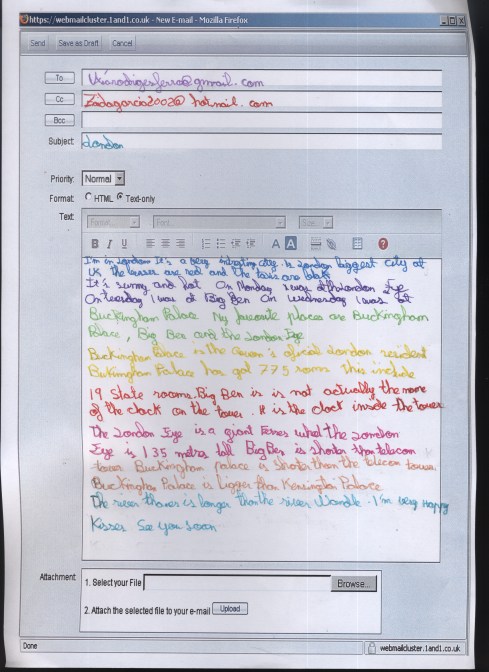 https://webmailcluster.1and1.co.uk - New E-mail - Mozilla Firefox
Send Save as Draft Cancel
To @gmail.com
Cc Zadagarcia2002@hotmail.com
Bcc
Subject: London
Priority: Normal
Format: HTML Text-only
Text: Format... Font... Size...
B I U A A
I'm in London It's a very city. Is London biggest city at
UK the are red and the taxis are black
It's sunny and hot On Monday I was at the London Eye
On tuesday I was at Big Ben On Wednesday I was at
Buckingham Palace My favourite places are Buckingham
Palace, Big Ben and the London Eye
Buckingham Palace is the Queen's oficial London resident
Buckingham Palace has got 775 rooms This include
19 State rooms. Big Ben is is not actually the name
of the clock on the tower. It is the clock inside the tower
The London Eye is a giant the London
Eye is 135 metres tall Big Ben is shorter than telecom
tower Buckingham palace is shorter than the telecom tower
Buckingham Palace is bigger than Palace
The river thames is longer than the river Wandle. I'm very Happy
Kisses See you soon
Attachment: 1. Select your File Browse...
2. Attach the selected file to your e-mail Upload
Done webmailcluster.1and1.co.uk